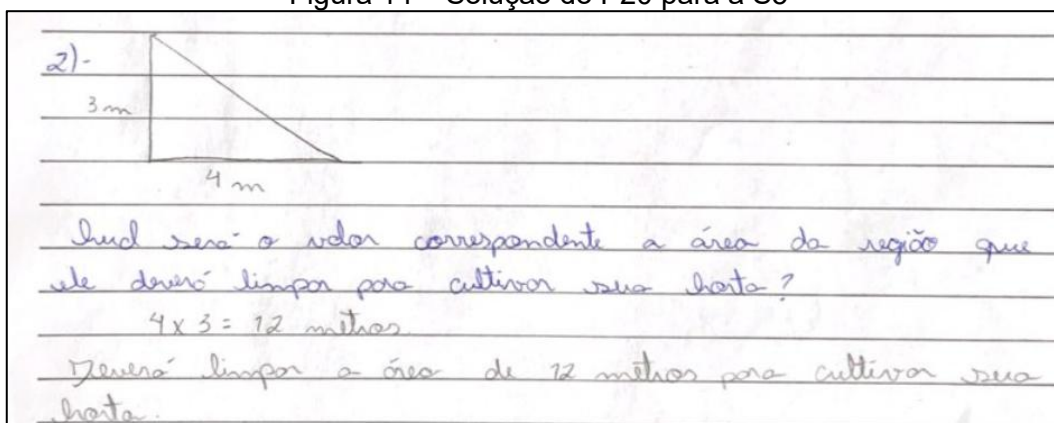 Figura 44 – Solução de P20 para a S3
2)-
3 m
4 m
Qual será o valor correspondente a área da região que
ele deverá limpar para cultivar sua horta?
4 x 3 = 12 metros
Deverá limpar a área de 12 metros para cultivar sua
horta.